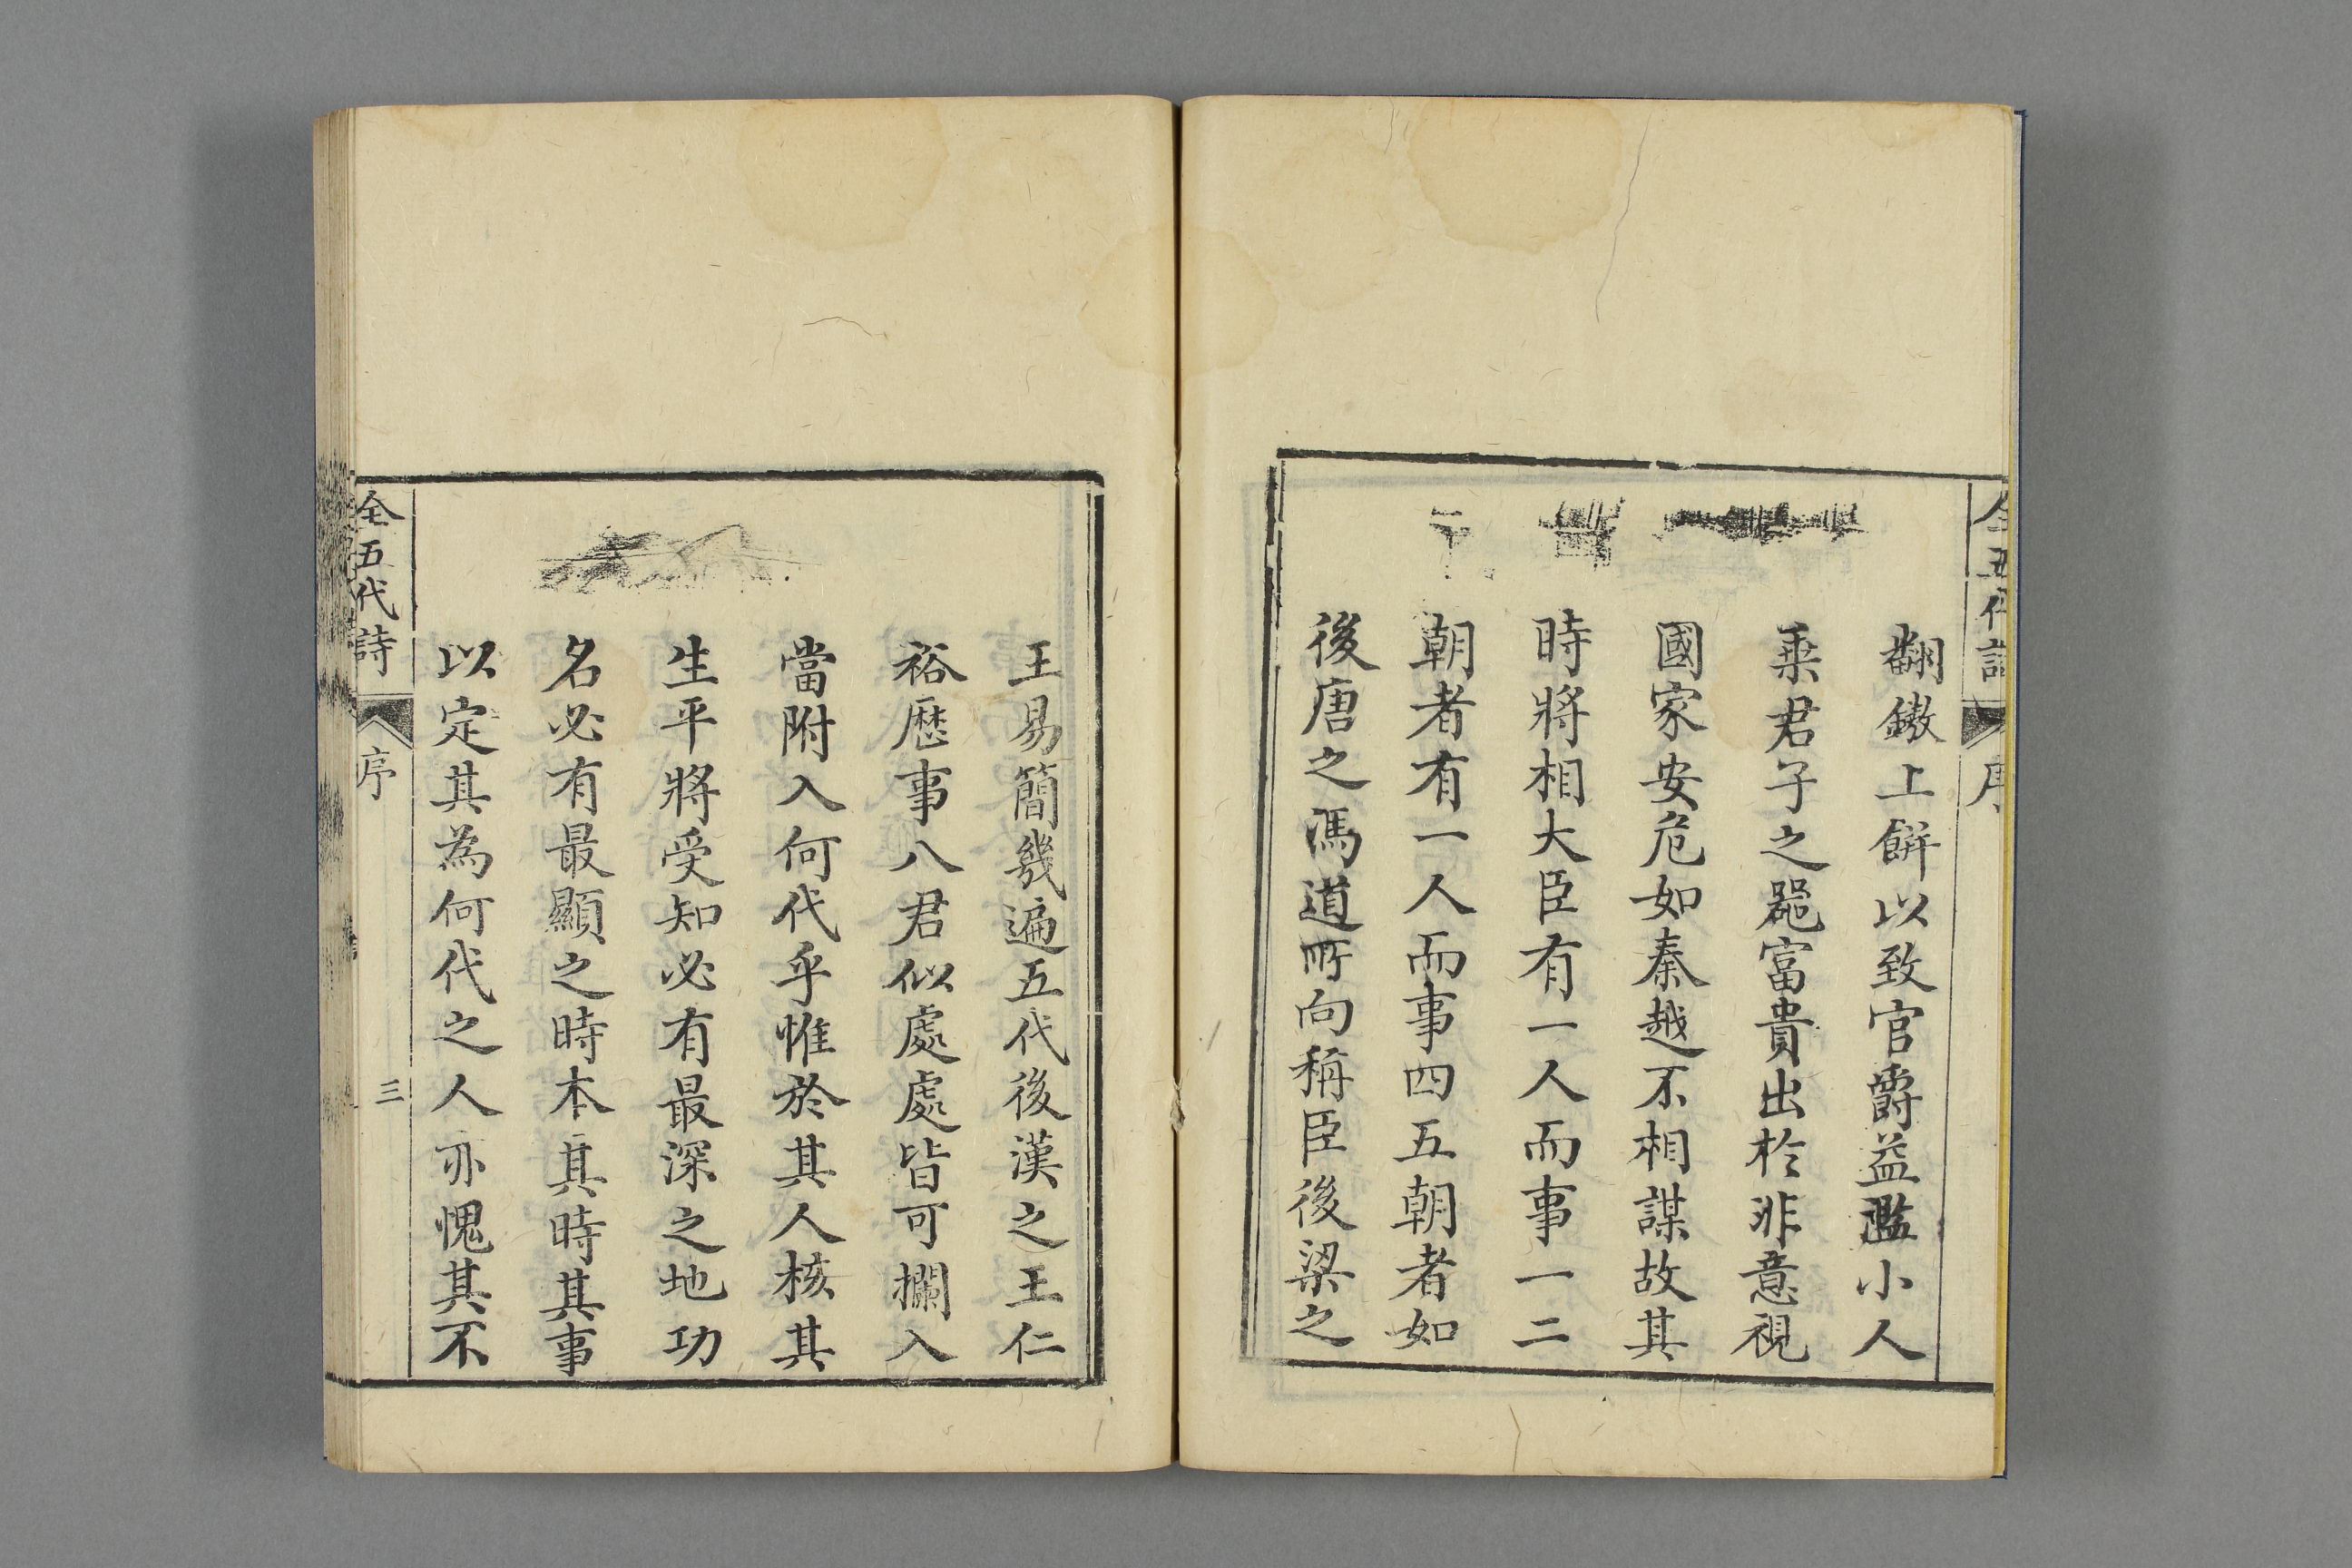 全五代詩
序
翻鏾上餅以致官爵益濫小人
乗君子之噐富貴出於非意視
國家安危如秦越不相謀故其
時將相大臣有一人而事一二
朝者有一人而事四五朝者如
後唐之馮道所向稱臣後梁之
王易簡幾遍五代後漢之王仁
裕歴事八君似處處皆可攔入
當附入何代乎惟於其人核其
生平將受知必有最深之地功
名必有最顯之時本其時其事
以定其為何代之人亦愧其不
全五代詩
序
三